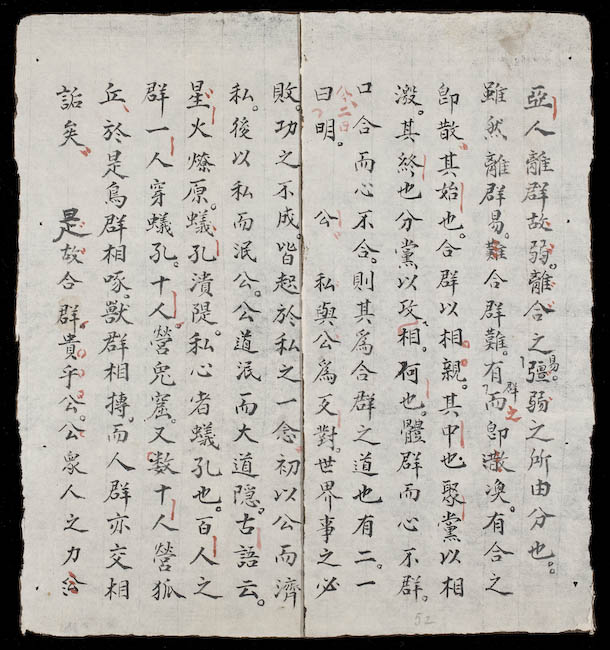 亞人離群故弱。離合之易彊弱之所由分也。
雖然離群易。難合群難。有群之而卽散渙。有合之
卽散其始也。合群以相親。其中也聚黨以相
潑。其終也分黨以攻相。何也。體群而心不群。
口合而心不合。則其爲合群之道也有二。一
曰明。公 私與公爲反對。世界事之必
敗。功之不成。皆起於私之一念初以公而濟
私。後以私而泯公。公道泯而大道隱。古語云。
星火燎原。蟻孔潰隄。私心者蟻孔也。百人之
群一人穿蟻孔。十人營兎窟。又数十人營狐
丘於是鳥群相啄。獸群相摶。而人群亦交相
詬矣 是故合群。貴乎公。公衆人之力
52